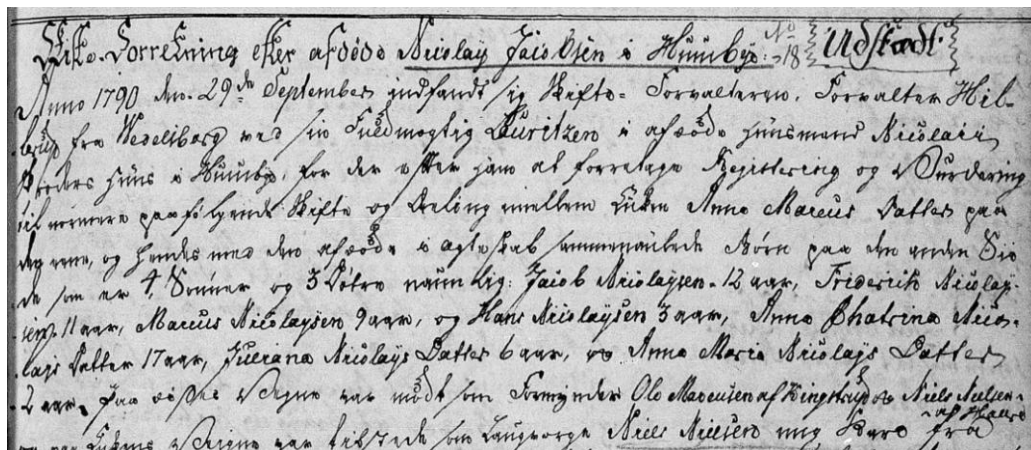 Skifte-Forretning efter afdøde Nicolay Jacobsen i Huusbye. No 18 Udstædt.
Anno 1790 den 29de September indfandt sig Skifte-Forvalteren, Forvalter Hil-
lerup fra Wedellsborg ved sin Fuldmegtig Lauritzen i afdøde Huusmand Nicolaii
Huus i Huusbye, for der efter ham at foretage Registering og Wurdering
til nermere paafølgende Skifte og Deeling imellem Enken Anna Marcus Datter paa
den eene, og hendes med den afdøde i ægteskab sammenaulede Børn paa den anden Sii-
de som er 4 Sønner og 3 Døtre naunlig: Jacob Nicolaysen 12 aar, Friderich Nicolay-
sen 11 aar, Marcus Nicolaysen 9 aar, og Hans Nicolaysen 3 aar, Anna Chatrina Nico-
lays Datter 17 aar, Juliana Nicolays Datter 6 aar, og Anna Maria Nicolays Datter
2 aar. Paa disses Wegne var mødt som Formynder Ole Marcusen af Kingstrup og Niels Nielsen
af
og paa Enkens Wegne var tilstede som Laugværge Niels Nielsen fra